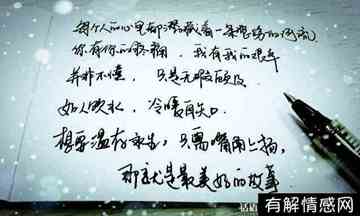 每个人的心里都潜藏着一条悲伤的河流
你有你的疼痛,我有我的艰辛
并非不懂,只是无暇顾及
如人饮水,冷暖自知
想要温存求生,只需嘴角上扬,
那就是最美好的故事
有解情感网